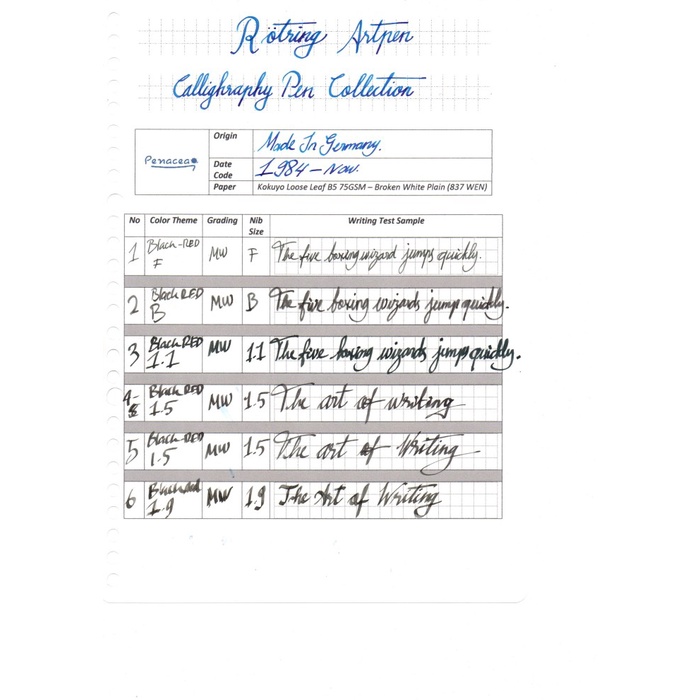 Rötring Artpen
Calligraphy Pen Collection
Penacea
Origin Made In Germany.
Date Code 1984 – Now.
Paper Kokuyo Loose Leaf B5 75GSM – Broken White Plain (837 WEN)
No Color Theme Grading Nib Size Writing Test Sample
1 Black-RED F MW F The five boxing wizard jumps quickly.
2 Black RED B MW B The five boxing wizards jump quickly.
3 Black RED 1.1 MW 1.1 The five boxing wizards jumps quickly.
4 Black RED 1.5 MW 1.5 The art of writing
5 Black-RED 1.5 MW 1.5 The art of Writing
6 Black Red 1.9 MW 1.9 The Art of Writing